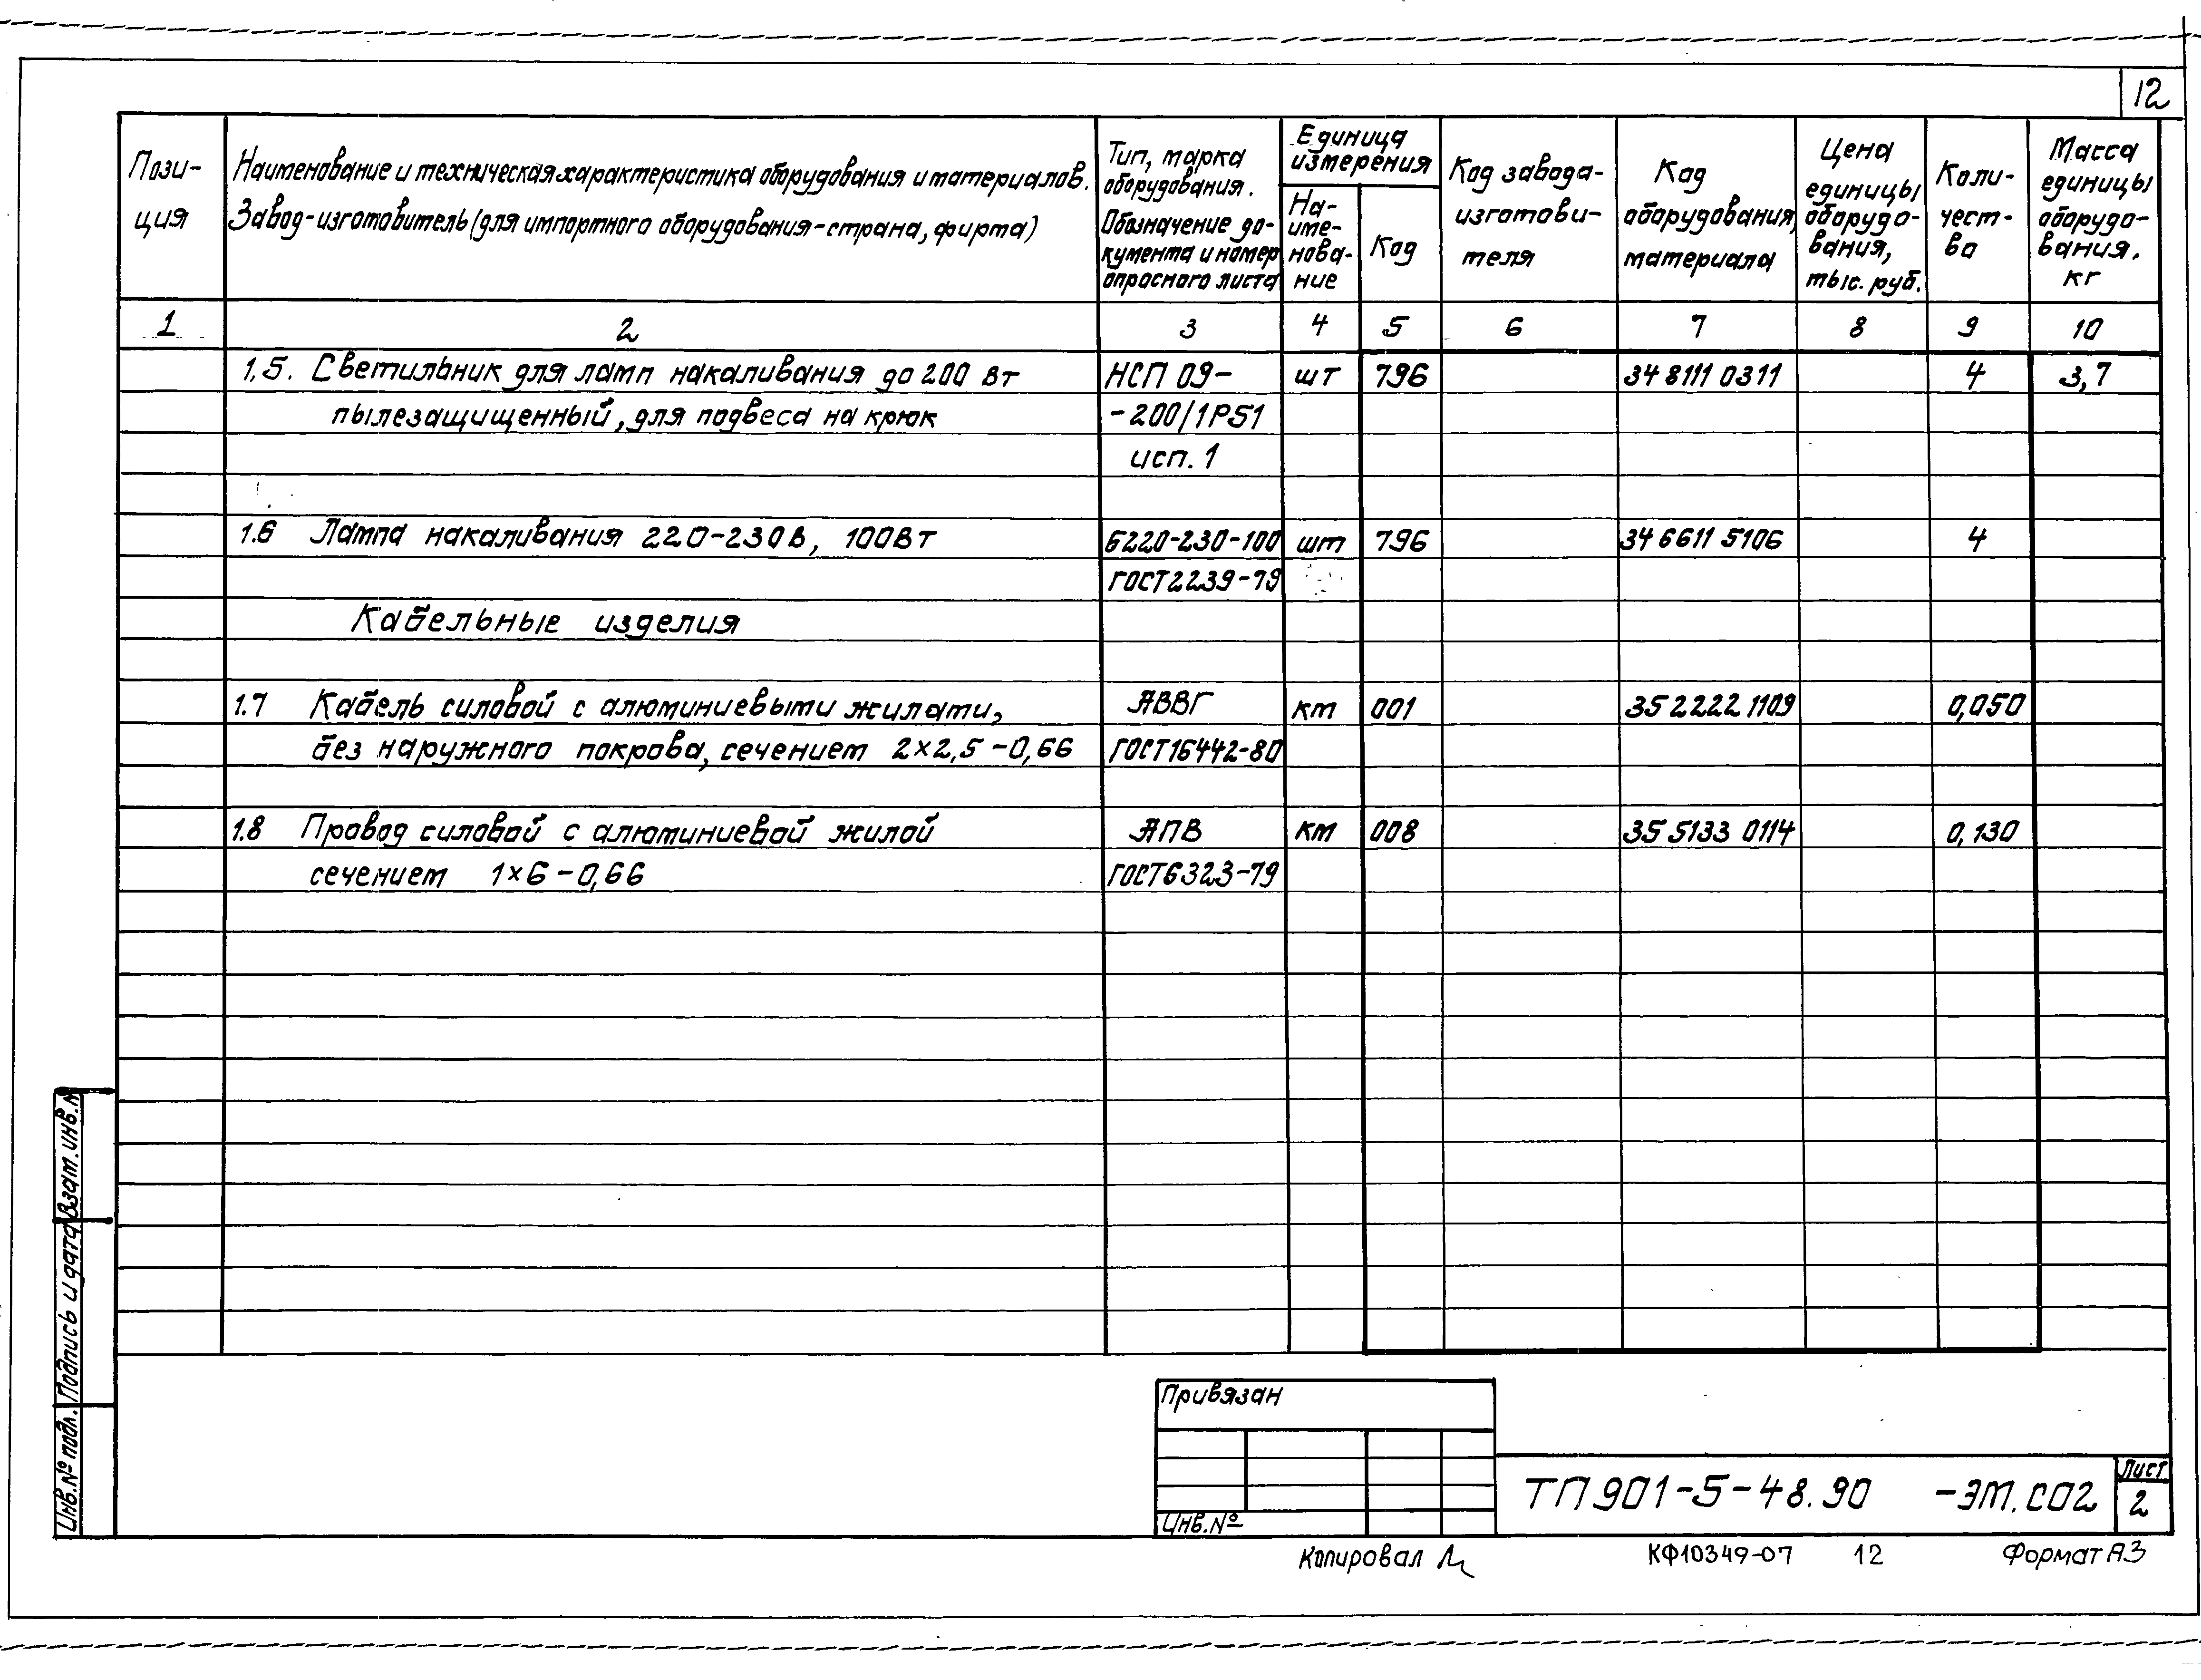 12
Пози-
ция
Наименование и техническая характеристика оборудования и материалов.
Завод-изготовитель (для импортного оборудования-страна, фирма)
Тип, марка
оборудования.
Обозначение до-
кумента и номер
опросного листа
Единица
измерения
На-
име-
нова-
ние
Код
Код завода-
изготови-
теля
Код
оборудования,
материала
Цена
единицы
оборудо-
вания,
тыс. руб.
Коли-
чест-
во
Масса
единицы
оборудо-
вания.
кг
1 2 3 4 5 6 7 8 9 10
1.5. Светильник для ламп накаливания до 200 Вт НСП 09- шт 796 34 8111 0311 4 3,7
пылезащищенный, для подвеса на крюк -200/1Р51
исп. 1
1.6 Лампа накаливания 220-230В, 100Вт Б220-230-100 шт 796 34 6611 5106 4
ГОСТ2239-79
Кабельные изделия
1.7 Кабель силовой с алюминиевыми жилами, АВВГ км 001 35 2222 1109 0,050
без наружного покрова, сечением 2×2,5-0,66 ГОСТ16442-80
1.8 Провод силовой с алюминиевой жилой АПВ км 008 35 5133 0114 0,130
сечением 1×6-0,66 ГОСТ6323-79
Взам. инв. №
Подпись и дата
Инв. № подл.
Привязан
Инв. №
ТП 901-5-48.90 -ЭМ.СО2
Лист
2
Копировал
КФ10349-07 12 Формат А3